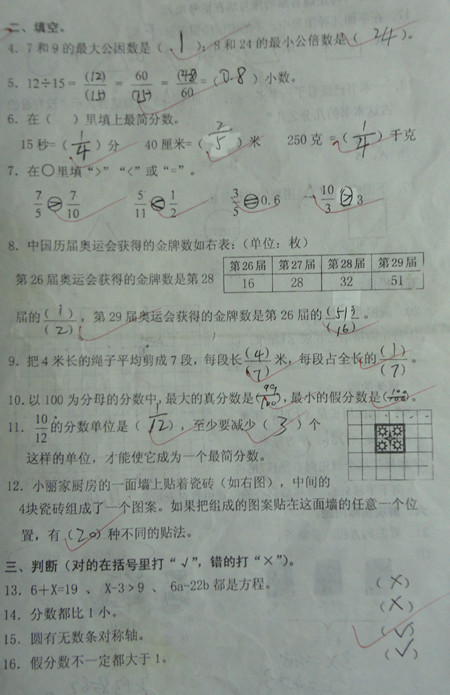 二、填空。
4. 7和9的最大公因数是( 1 )；8和24的最小公倍数是( 24 )。
5. 12÷15= (12)/(15) = 60/(75) = (48)/60 =(0.8)小数。
6. 在( )里填上最简分数。
15秒=( 1/4 )分 40厘米=( 2/5 )米 250克=( 1/4 )千克
7. 在○里填“>”“<”或“=”。
7/5 > 7/10 5/11 < 1/2 3/5 = 0.6 10/3 > 3
8. 中国历届奥运会获得的金牌数如右表：(单位：枚)
第26届 第27届 第28届 第29届
16 28 32 51
第26届奥运会获得的金牌数是第28
届的 (1)/(2) ，第29届奥运会获得的金牌数是第26届的 (51)/(16) 。
9. 把4米长的绳子平均剪成7段，每段长 (4)/(7) 米，每段占全长的 (1)/(7) 。
10. 以100为分母的分数中，最大的真分数是( 99/100 )，最小的假分数是( 100/100 )。
11. 10/12 的分数单位是( 1/12 )，至少要减少( 3 )个
这样的单位，才能使它成为一个最简分数。
12. 小丽家厨房的一面墙上贴着瓷砖(如右图)，中间的
4块瓷砖组成了一个图案。如果把组成的图案贴在这面墙的任意一个位
置，有(20)种不同的贴法。
三、判断（对的在括号里打“√”，错的打“×”）。
13. 6+X=19 、 X-3>9 、 6a-22b 都是方程。 (×)
14. 分数都比1小。 (×)
15. 圆有无数条对称轴。 (√)
16. 假分数不一定都大于1。 (√)